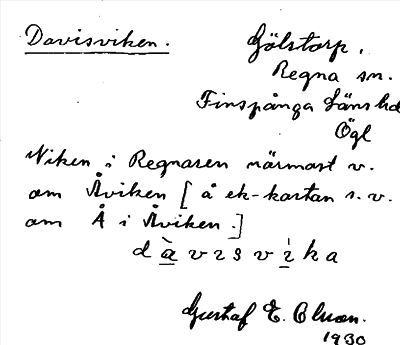 Davisviken.
Gölstorp,
Regna sn.
Finspånga Länshd
Ögl
Viken i Regnaren närmast v.
om Åviken [å ek-kartan s.v.
om Å i Åviken.]
d à v ɪ s v ɪ̀ k a
Gustaf E. Olsson.
1930